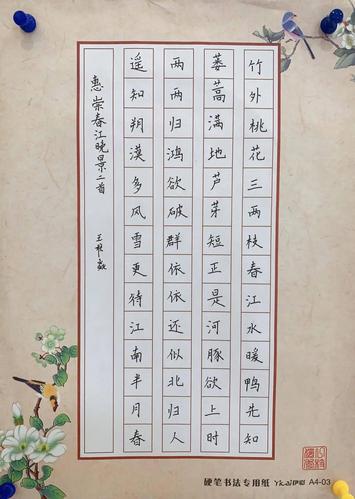 竹外桃花三两枝春江水暖鸭先知
蒌蒿满地芦芽短正是河豚欲上时
两两归鸿欲破群依依还似北归人
遥知朔漠多风雪更待江南半月春
惠崇春江晚景二首
硬笔书法专用纸 Yicai伊彩 A4-03